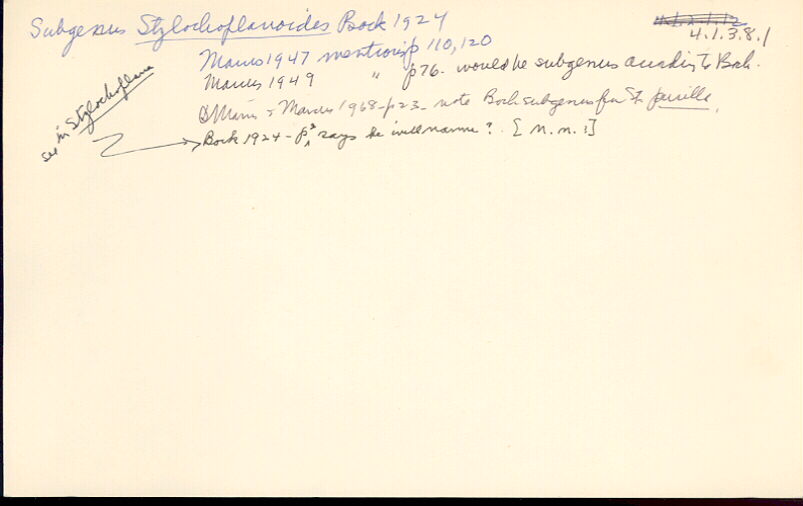 Subgenus Stylochoplanoides Bock 1924
4.1.3.8.1
Marcus 1947 mentions p 110, 120
Marcus 1949 " p 76. would be subgenus according to Bock.
Marcus & Marcus 1968 - p 23 - note Bock subgenus for St.
see in Stylochoplana
Bock 1924 - p ? says he will name ? [n.n.?]